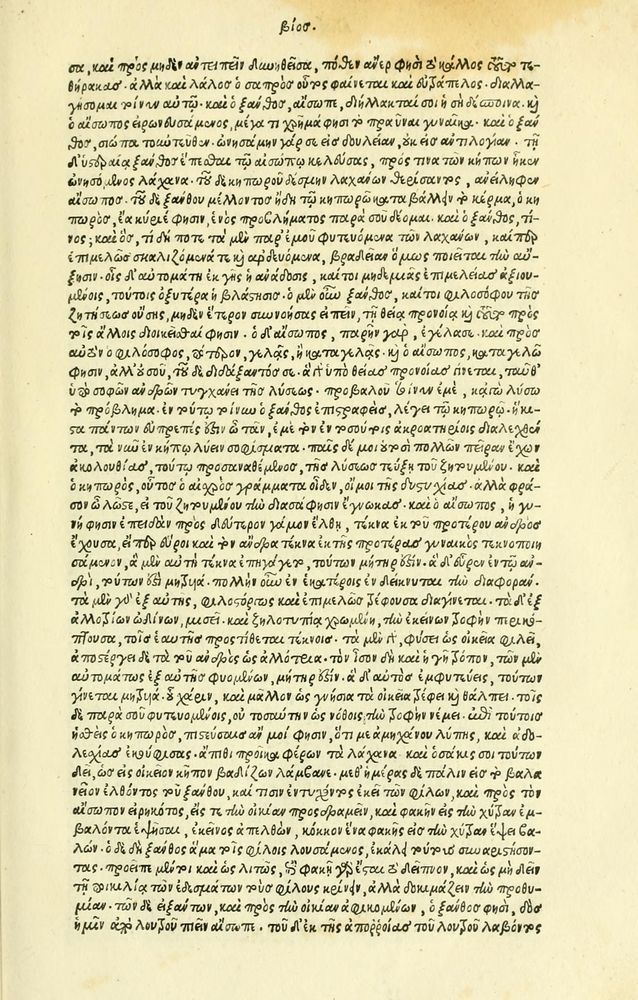 βίος.
σα, καὶ πρὸς μηδὲν ἀντειπεῖν διανηθεῖσα, πόθεν ἄνερ φησὶ τὸ κάλλος τοῦτο τε-
θήρακας. ἀλλὰ καὶ λάλος ὁ σαπρὸς οὗτος φαίνεται καὶ εὐτράπελος. διαλλα-
γήσομαι τοίνυν αὐτῷ. καὶ ὁ ξάνθος, αἴσωπε, διήλλακταί σοι ἡ σὴ δέσποινα. καὶ
ὁ αἴσωπος εἰρωνευσάμενος, μέγα τι χρῆμα φησὶ τὸ πραῦναι γυναῖκα. καὶ ὁ ξάν
θος, σιώπα τοὐντεῦθεν. ὠνησάμην γάρ σε εἰς δουλείαν, οὐκ εἰς ἀντιλογίαν. τῇ
δ' ὑστεραίᾳ ξάνθος ἕπεσθαι τῷ αἰσώπῳ κελεύσας, πρός τινα τῶν κήπων ἧκεν
ὠνησόμενος λάχανα. τοῦ δὲ κηπωροῦ δέσμην λαχάνων θερίσαντος, ἀνείληφεν
αἴσωπος. τοῦ δὲ ξάνθου μέλλοντος ἤδη τῷ κηπωρῷ καταβαλεῖν τὸ κέρμα, ὁ κη
πωρὸς, ἔα κύριέ φησιν, ἑνὸς προβλήματος παρὰ σοῦ δέομαι. καὶ ὁ ξάνθος, τί-
νος; καὶ ὃς, τί δή ποτε τὰ μὲν παρ' ἐμοῦ φυτευόμενα τῶν λαχάνων, καίπερ
ἐπιμελῶς σκαλιζόμενά τε καὶ ἀρδευόμενα, βραδεῖαν ὅμως ποιεῖται τὴν αὔ-
ξησιν. οἷς δ' αὐτομάτη ἐκ γῆς ἡ ἀνάδοσις, καίτοι μηδεμιᾶς ἐπιμελείας ἀξιου-
μένοις, τούτοις ὀξυτέρα ἡ βλάστησις. ὁ μὲν οὖν ξάνθος, καίτοι φιλοσόφου τῆς
ζητήσεως οὔσης, μηδὲν ἕτερον συννοήσας εἰπεῖν, τῇ θείᾳ προνοίᾳ καὶ τοῦτο πρὸς
τοῖς ἄλλοις διοικεῖσθαί φησιν. ὁ δ' αἴσωπος, παρῆν γὰρ, ἐγέλασε. καὶ πρὸς
αὐτὸν ὁ φιλόσοφος, πότερον, γελᾷς, ἢ καταγελᾷς. καὶ ὁ αἴσωπος, καταγελῶ
φησὶν, ἀλλ' οὐ σοῦ, τοῦ δὲ διδάξαντός σε. ἃ γὰρ ὑπὸ θείας προνοίας γίνεται, ταῦθ'
ὑπὸ σοφῶν ἀνδρῶν τυγχάνει τῆς λύσεως. προβαλοῦ τοίνυν ἐμὲ, κἀγὼ λύσω
τὸ πρόβλημα. ἐν τούτῳ τοίνυν ὁ ξάνθος ἐπιστραφεὶς, λέγει τῷ κηπωρῷ. ἥκι-
στα πάντων εὐπρεπές ἐστιν ὦ τᾶν, ἐμὲ τὸν ἐν τοσούτοις ἀκροατηρίοις διαλεχθέν
τα, τὰ νῦν ἐν κήπῳ λύειν σοφίσματα. παῖς δέ μοι οὑτοσὶ πολλῶν πεῖραν ἔχων
ἀκολουθίας, τούτῳ προσαναθέμενος, τῆς λύσεως τεύξῃ τοῦ ζητουμένου. καὶ
ὁ κηπωρὸς, οὗτος ὁ αἰσχρὸς γράμματα οἶδεν, οἴμοι τῆς δυστυχίας. ἀλλὰ φρά-
σον ὦ λῷστε, εἰ τοῦ ζητουμένου τὴν διασάφησιν ἔγνωκας. καὶ ὁ αἴσωπος, ἡ γυ-
νή φησιν ἐπειδὰν πρὸς δεύτερον γάμον ἔλθῃ, τέκνα ἐκ τοῦ προτέρου ἀνδρὸς
ἔχουσα, εἴπερ εὕροι καὶ τὸν ἄνδρα τέκνα ἐκ τῆς προτέρας γυναικὸς τεκνοποιη
σάμενον, ἃ μὲν αὐτὴ τέκνα ἐπηγάγετο, τούτων μήτηρ ἐστίν. ἃ δ' εὗρεν ἐν τῷ ἀν-
δρὶ, τούτων ἐστὶ μητρυιά. πολλὴν οὖν ἐν ἑκατέροις ἐνδείκνυται τὴν διαφοράν.
τὰ μὲν γὰρ ἐξ αὐτῆς, φιλοστόργως καὶ ἐπιμελῶς τρέφουσα διαγίνεται. τὰ δ' ἐξ
ἀλλοτρίων ὠδίνων, μισεῖ. καὶ ζηλοτυπίᾳ χρωμένη, τὴν ἐκείνων τροφὴν περικό-
πτουσα, τοῖς ἑαυτῆς προστίθεται τέκνοις. τὰ μὲν γὰρ, φύσει ὡς οἰκεῖα φιλεῖ,
ἀποστέργει δὲ τὰ τοῦ ἀνδρὸς ὡς ἀλλότρια. τὸν ἴσον δὴ καὶ ἡ γῆ τρόπον, τῶν μὲν
αὐτομάτως ἐξ αὐτῆς φυομένων, μήτηρ ἐστίν. ἃ δ' αὐτὸς ἐμφυτεύεις, τούτων
γίνεται μητρυιά. οὗ χάριν, καὶ μᾶλλον ὡς γνήσια τὰ οἰκεῖα τρέφει καὶ θάλπει. τοῖς
δὲ παρὰ σοῦ φυτευομένοις, οὐ τοσαύτην ὡς νόθοις τὴν τροφὴν νέμει. ἐπὶ τούτοις
ἡσθεὶς ὁ κηπωρὸς, πιστεύσαις ἄν μοι φησὶν, ὅτι με ἀμηχάνου λύπης, καὶ ἀδο-
λεσχίας ἐκούφισας. ἄπιθι προῖκα φέρων τὰ λάχανα. καὶ ὁσάκις σοι τούτων
δεῖ, ὡς εἰς οἰκεῖον κῆπον βαδίζων λάμβανε. μεθ' ἡμέρας δὲ πάλιν εἰς τὸ βαλα
νεῖον ἐλθόντος τοῦ ξάνθου, καί τισιν ἐντυχόντος ἐκεῖ τῶν φίλων, καὶ πρὸς τὸν
αἴσωπον εἰρηκότος, εἴς τε τὴν οἰκίαν προσδραμεῖν, καὶ φακῆν εἰς τὴν χύτραν ἐμ-
βαλόντα ἑψῆσαι, ἐκεῖνος ἀπελθὼν, κόκκον ἕνα φακῆς εἰς τὴν χύτραν ἕψει βα-
λών. ὁ δὲ δὴ ξάνθος ἅμα τοῖς φίλοις λουσάμενος, ἐκάλει τούτους συναριστήσον-
τας. προεῖπε μέντοι καὶ ὡς λιτῶς, ἐπὶ φακῇ γὰρ ἔσται τὸ δεῖπνον, καὶ ὡς μὴ δεῖν
τῇ ποικιλίᾳ τῶν ἐδεσμάτων τοὺς φίλους κρίνειν, ἀλλὰ δοκιμάζειν τὴν προθυ-
μίαν. τῶν δὲ εἰξάντων, καὶ πρὸς τὴν οἰκίαν ἀφικομένων, ὁ ξάνθος φησὶ, δὸς
ἡμῖν ἀπὸ λουτροῦ πιεῖν αἴσωπε. τοῦ δ' ἐκ τῆς ἀπορροίας τοῦ λουτροῦ λαβόντος